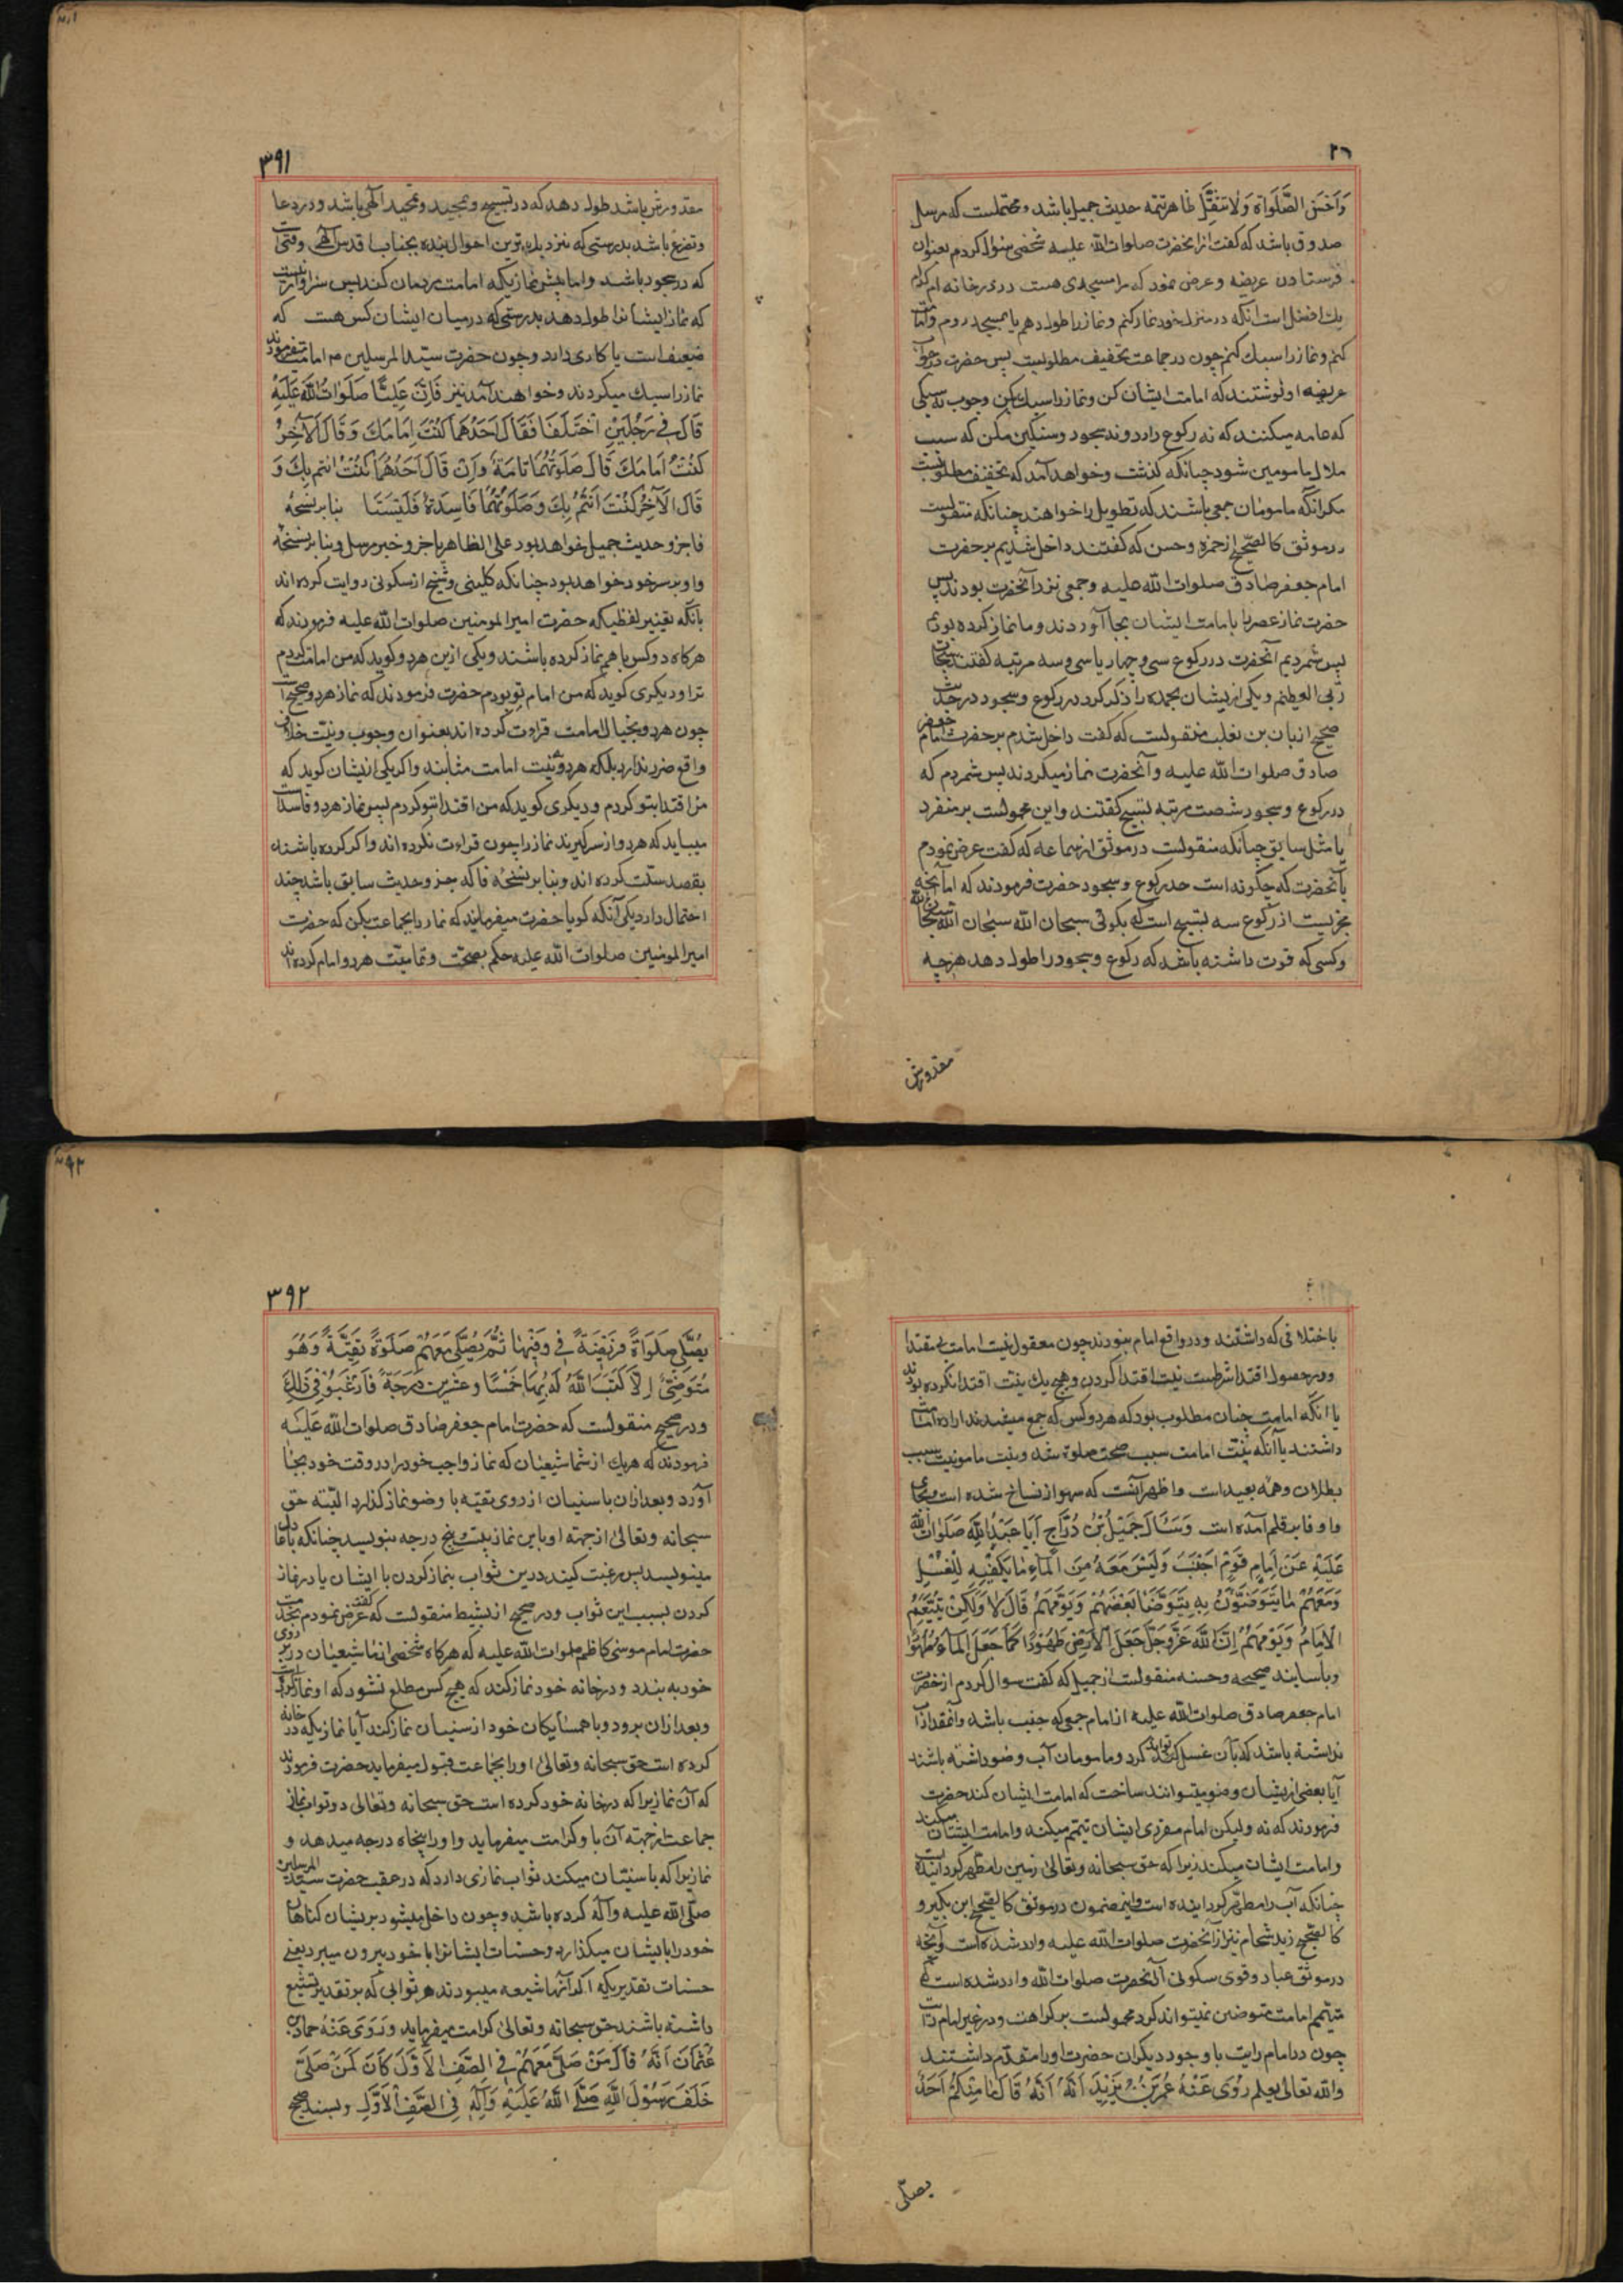 وَاَحْسِنِ الصَّلَوٰاةَ وَلَا تَثْقُلْ ظاهر تتمه حدیث جمیل باشد و محتملست که مرسل
صدوق باشد که کفت از انحضرت صلوات الله علیه شخصی سئوال کردم بعنوان
فرستادن عریضه و عرض نمود که مرا مسجدی هست در در خانه ام کدام
یك افضل است انکه در منزل خود نماز کنم و نماز را طول دهم یا بمسجد روم و امامت
کنم و نماز را سبك کنم چون در جماعت تخفیف مطلوبست پس حضرت در جواب
عریضه او نوشتند که امامت ایشان کن و نماز را سبك بکن و چون نه سبکی
که عامه میکنند که نه رکوع دارد و نه سجود و سنکین مکن که سبب
ملال مامومین شود چنانکه کذشت و خواهد آمد که تخفیف مطلوبست
مکر انکه مامومان جمعی باشند که تطویل را خواهند چنانکه منقولست
در موثق کالصحیح از حمزه و حسن که کفتند داخل شدیم بر حضرت
امام جعفر صادق صلوات الله علیه و جمعی نزد آنحضرت بودند پس
حضرت نماز عصر را با مامت ایشان بجا آوردند و ما نماز کرده بودیم
پس شمردیم آنحضرت در رکوع سی و چهار یا سی و سه مرتبه کفتند سبحان
ربی العظیم و یکی از یشان بحمده را ذکر کرد در رکوع و سجود و در حدیث
صحیح از ابان بن تغلب منقولست که کفت داخل شدم بر حضرت امام جعفر
صادق صلوات الله علیه و آنحضرت نماز میکردند پس شمردم که
در رکوع و سجود شصت مرتبه تسبیح کفتند و این محمولست بر منفرد
یا مثل سابق چنانکه منقولست در موثق از سماعه که کفت عرض نمودم
بآنحضرت که چکونه است حد رکوع و سجود حضرت فرمودند که اما آنچه
مجزیست از رکوع سه تسبیح است که بکوئی سبحان الله سبحان الله سبحان الله
و کسی که قوت داشته باشد که رکوع و سجود را طول دهد هر چه
مقدورش
۳۹۱
مقدورش باشد طول دهد که در تسبیح و تمجید و تحمید الهی باشد و در دعا
و تضرع باشد بدرستی که نزدیك ترین احوال بنده بجناب اقدس الهی وقتی است
که در سجود باشد و اما پیش نمازیکه امامت مردمان کند پس سزاوار نیست
که نماز ایشانرا طول دهد بدرستی که در میان ایشان کس هست که
ضعیف است یا کاری دارد و چون حضرت سید المرسلین ص امامت میفرمودند
نماز را سبك میکردند و خواهند آمد نیز فَاِنَّ عَلِیًّا صَلَوٰاتُ اللهِ عَلَیْهِ
قَالَ فِی رَجُلَیْنِ اخْتَلَفَا فَقَالَ اَحَدُهُمَا کُنْتُ اِمَامَكَ وَقَالَ الْآخَرُ
کُنْتُ اِمَامَكَ قَالَ صَلَوتُهُمَا تَامَّةٌ وَاِنْ قَالَ اَحَدُهُمَا کُنْتُ ائتم بِكَ وَ
قَالَ الْآخَرُ کُنْتُ اَئْتَمُّ بِكَ وَصَلَوتُهُمَا فَاسِدَةٌ فَلْیَسْتَا بنا بر نسخهٔ
فا جزو حدیث جمیل خواهد بود علی الظاهر یا جزو خبر مرسل و بنا بر نسخه
واو بر سر خود خواهد بود چنانکه کلینی و شیخ از سکونی روایت کرده اند
بانکه تغییر لفظیکه حضرت امیر المومنین صلوات الله علیه فرمودند که
هرکاه دو کس با هم نماز کرده باشند و یکی ازین هر دو کوید که من امامت کردم
ترا و دیکری کوید که من امام تو بودم حضرت فرمودند که نماز هر دو صحیح است
چون هر دو بخیال امامت قراءت کرده اند بعنوان وجوب و نیت خلاف
واقع ضرر ندارد بلکه هر دو بنیت امامت مثابند و اکر یکی از یشان کوید که
من اقتدا بتو کردم و دیکری کوید که من اقتدا بتو کردم پس نماز هر دو فاسد است
میباید که هر دو از سر کیرند نماز را چون قراءت نکرده اند و اکر کرده باشند
بقصد سنت کرده اند و بنا بر نسخهٔ فا که جزو حدیث سابق باشد چند
احتمال دارد یکی آنکه کویا حضرت میفرماید که نماز را بجماعت بکن که حضرت
امیر المومنین صلوات الله علیه حکم بصحت و تمامیت هر دو امام کرده اند
با ختلافی که داشتند و در واقع امام نبودند چون معقول نیست امامت بی مقتدا
و در حصول اقتدا شرطست نیت اقتدا کردن و هیچ یك نیت اقتدا نکرده بودند
یا انکه امامت چنان مطلوب بود که هر دو کس که جمع میشدند اراده امامت
داشتند یا آنکه نیت امامت سبب صحت صلوة شد و نیت مامومیت سبب
بطلان و همه بعید است و اظهر آنست که سهو از نساخ شده است و بجای
واو فا بر قلم آمده است وَسَئَالَ جَمِیْلُ بْنُ دُرَّاجٍ اَبَا عَبْدِ اللهِ صَلَوٰاتُ الله
عَلَیْهِ عَنْ اِمَامِ قَوْمٍ اَجْنَبَ وَلَیْسَ مَعَهُ مِنَ الْمَاءِ مَا یَکْفِیْهِ لِلْغُسْلِ
وَمَعَهُمْ مَا یَتَوَضَّئُوْنَ بِهِ یَتَوَضَّأُ بَعْضُهُمْ وَیَؤُمُّهُمْ قَالَ لَا وَلٰکِنْ یَتَیَمَّمُ
الْاِمَامُ وَیَؤُمُّهُمْ اِنَّ اللهَ عَزَّوَجَلَّ جَعَلَ الْاَرْضَ طَهُوْرًا کَمَا جَعَلَ الْمَاءَ طَهُوْرًا
و باسانید صحیحه و حسنه منقولست از جمیل که کفت سوال کردم از حضرت
امام جعفر صادق صلوات الله علیه از امام جمعی که جنب باشد و آنمقدار آب
نداشته باشد که بآن غسل تواند کرد و مامومان آب وضو داشته باشند
آیا بعضی از یشان وضو میتوانند ساخت که امامت ایشان کند حضرت
فرمودند که نه ولیکن امام مفردی ایشان تیمم میکند و امامت ایشان میکند
و امامت ایشان میکند زیرا که حق سبحانه و تعالی زمین را مطهر کردانیده است
چنانکه آب را مطهر کردانیده است و این مضمون در موثق کالصحیح ابن بکیر و
کالصحیح زید شحام نیز از آنحضرت صلوات الله علیه وارد شده است و آنچه
در موثق عباد و قوی سکونی از آنحضرت صلوات الله وارد شده است که
متیمم امامت متوضین نمیتواند کرد محمولست بر کراهت و در غیر امام راتب
چون در امام راتب با وجود دیکران حضرت او را مقدم داشتند
والله تعالی یعلم رَوٰی عَنْهُ عُمَرُ بْنُ یَزِیْدَ اَنَّهُ قَالَ مَا مِنْکُمْ اَحَدٌ
یصلی
۳۹۲
یُصَلِّی صَلَوٰاةً فَرِیْضَةً فِی وَقْتِهَا ثُمَّ یُصَلِّی مَعَهُمْ صَلَوٰةً تَقِیَّةً وَهُوَ
مُتَوَضِّئٌ اِلَّا کَتَبَ اللهُ لَهُ بِهَا خَمْسًا وَعِشْرِیْنَ دَرَجَةً فَارْغَبُوْا فِی ذٰلِكَ
و در صحیح منقولست که حضرت امام جعفر صادق صلوات الله عَلَیْه
فرمودند که هر یك از شما شیعیان که نماز واجب خود را در وقت خود بجا
آورد و بعد ازان با سنیان از روی تقیه با وضو نماز کذارد البته حق
سبحانه و تعالی از جهته او باین نماز بیست و پنج درجه بنویسد چنانکه
مینویسد پس رغبت کنید درین ثواب بنماز کردن با ایشان یا در نماز
کردن بسبب این ثواب و در صحیح از نشیط منقولست که کفت عرض نمودم بخدمت
حضرت امام موسی کاظم صلوات الله علیه که هرکاه شخصی از ما شیعیان در بر روی
خود به بندد و در خانه خود نماز کند که هیچ کس مطلع نشود که او نماز کرده است
و بعد ازان برود و با همسایکان خود از سنیان نماز کند آیا نمازیکه در خانه
کرده است حق سبحانه و تعالی او را بجماعت قبول میفرماید حضرت فرمودند
که آن نمازیرا که در خانه خود کرده است حق سبحانه و تعالی دو ثواب نماز
جماعت از جهته آن باو کرامت میفرماید و او را پنجاه درجه میدهد و
نمازیرا که با سنیان میکند ثواب نمازی دارد که در عقب حضرت سید المرسلین
صلی الله علیه و آله کرده باشد و چون داخل میشود بر یشان کناهان
خود را بایشان میکذارد و حسنات ایشانرا با خود بیرون میبرد یعنی
حسنات تقدیریکه اکر آنها شیعه میبودند هر ثوابی که بر تقدیر تشیع
داشته باشند حق سبحانه و تعالی کرامت میفرماید وَرَوٰی عَنْهُ حماد بن
عُثْمَانَ اَنَّهُ قَالَ مَنْ صَلَّی مَعَهُمْ فِی الصَّفِّ الْاَوَّلِ کَانَ کَمَنْ صَلَّی
خَلْفَ رَسُوْلِ اللهِ صَلَّی اللهُ عَلَیْهِ وَآلِهِ فِی الصَّفِّ الْاَوَّلِ و بسند صحیح